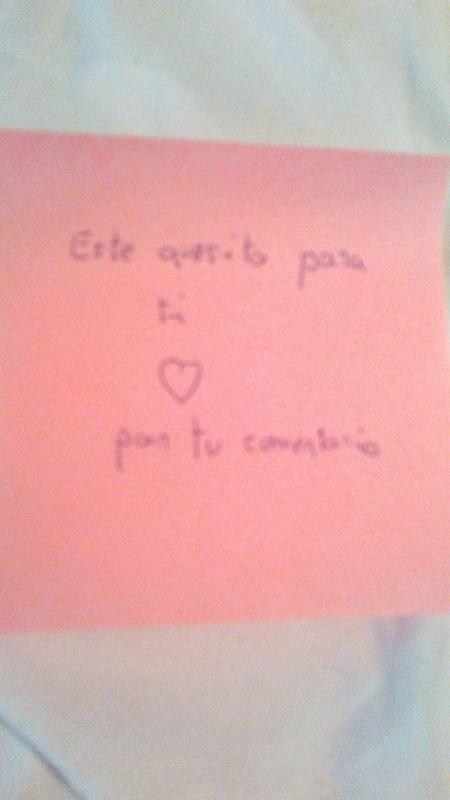 Este quesito para
ti
♡
por tu comentario